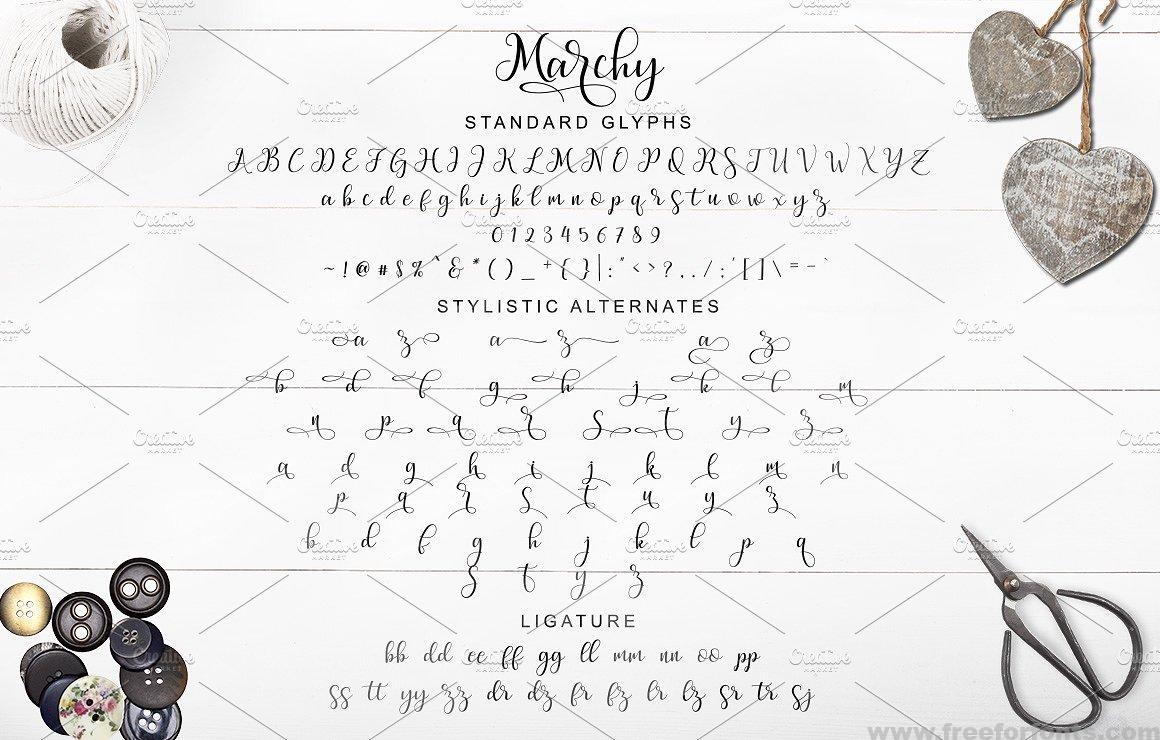 Marchy
STANDARD GLYPHS
A B C D E F G H I J K L M N O P Q R S T U V W X Y Z
a b c d e f g h i j k l m n o p q r s t u v w x y z
0 1 2 3 4 5 6 7 8 9
~ ! @ # $ % ^ & * ( ) _ + { } | : " < > ? , . / ; ' [ ] \ = - `
STYLISTIC ALTERNATES
a z a z a z
b d f g h j k l m
n p q r s t y z
a d g h i j k l m n
p q r s t u y z
b d f g h j k l p q
s t y z
LIGATURE
bb dd ee ff gg ll mm nn oo pp
ss tt yy zz dr dz fr fz lr lz sr tr sj
Creative MARKET
www.freeforfonts.com